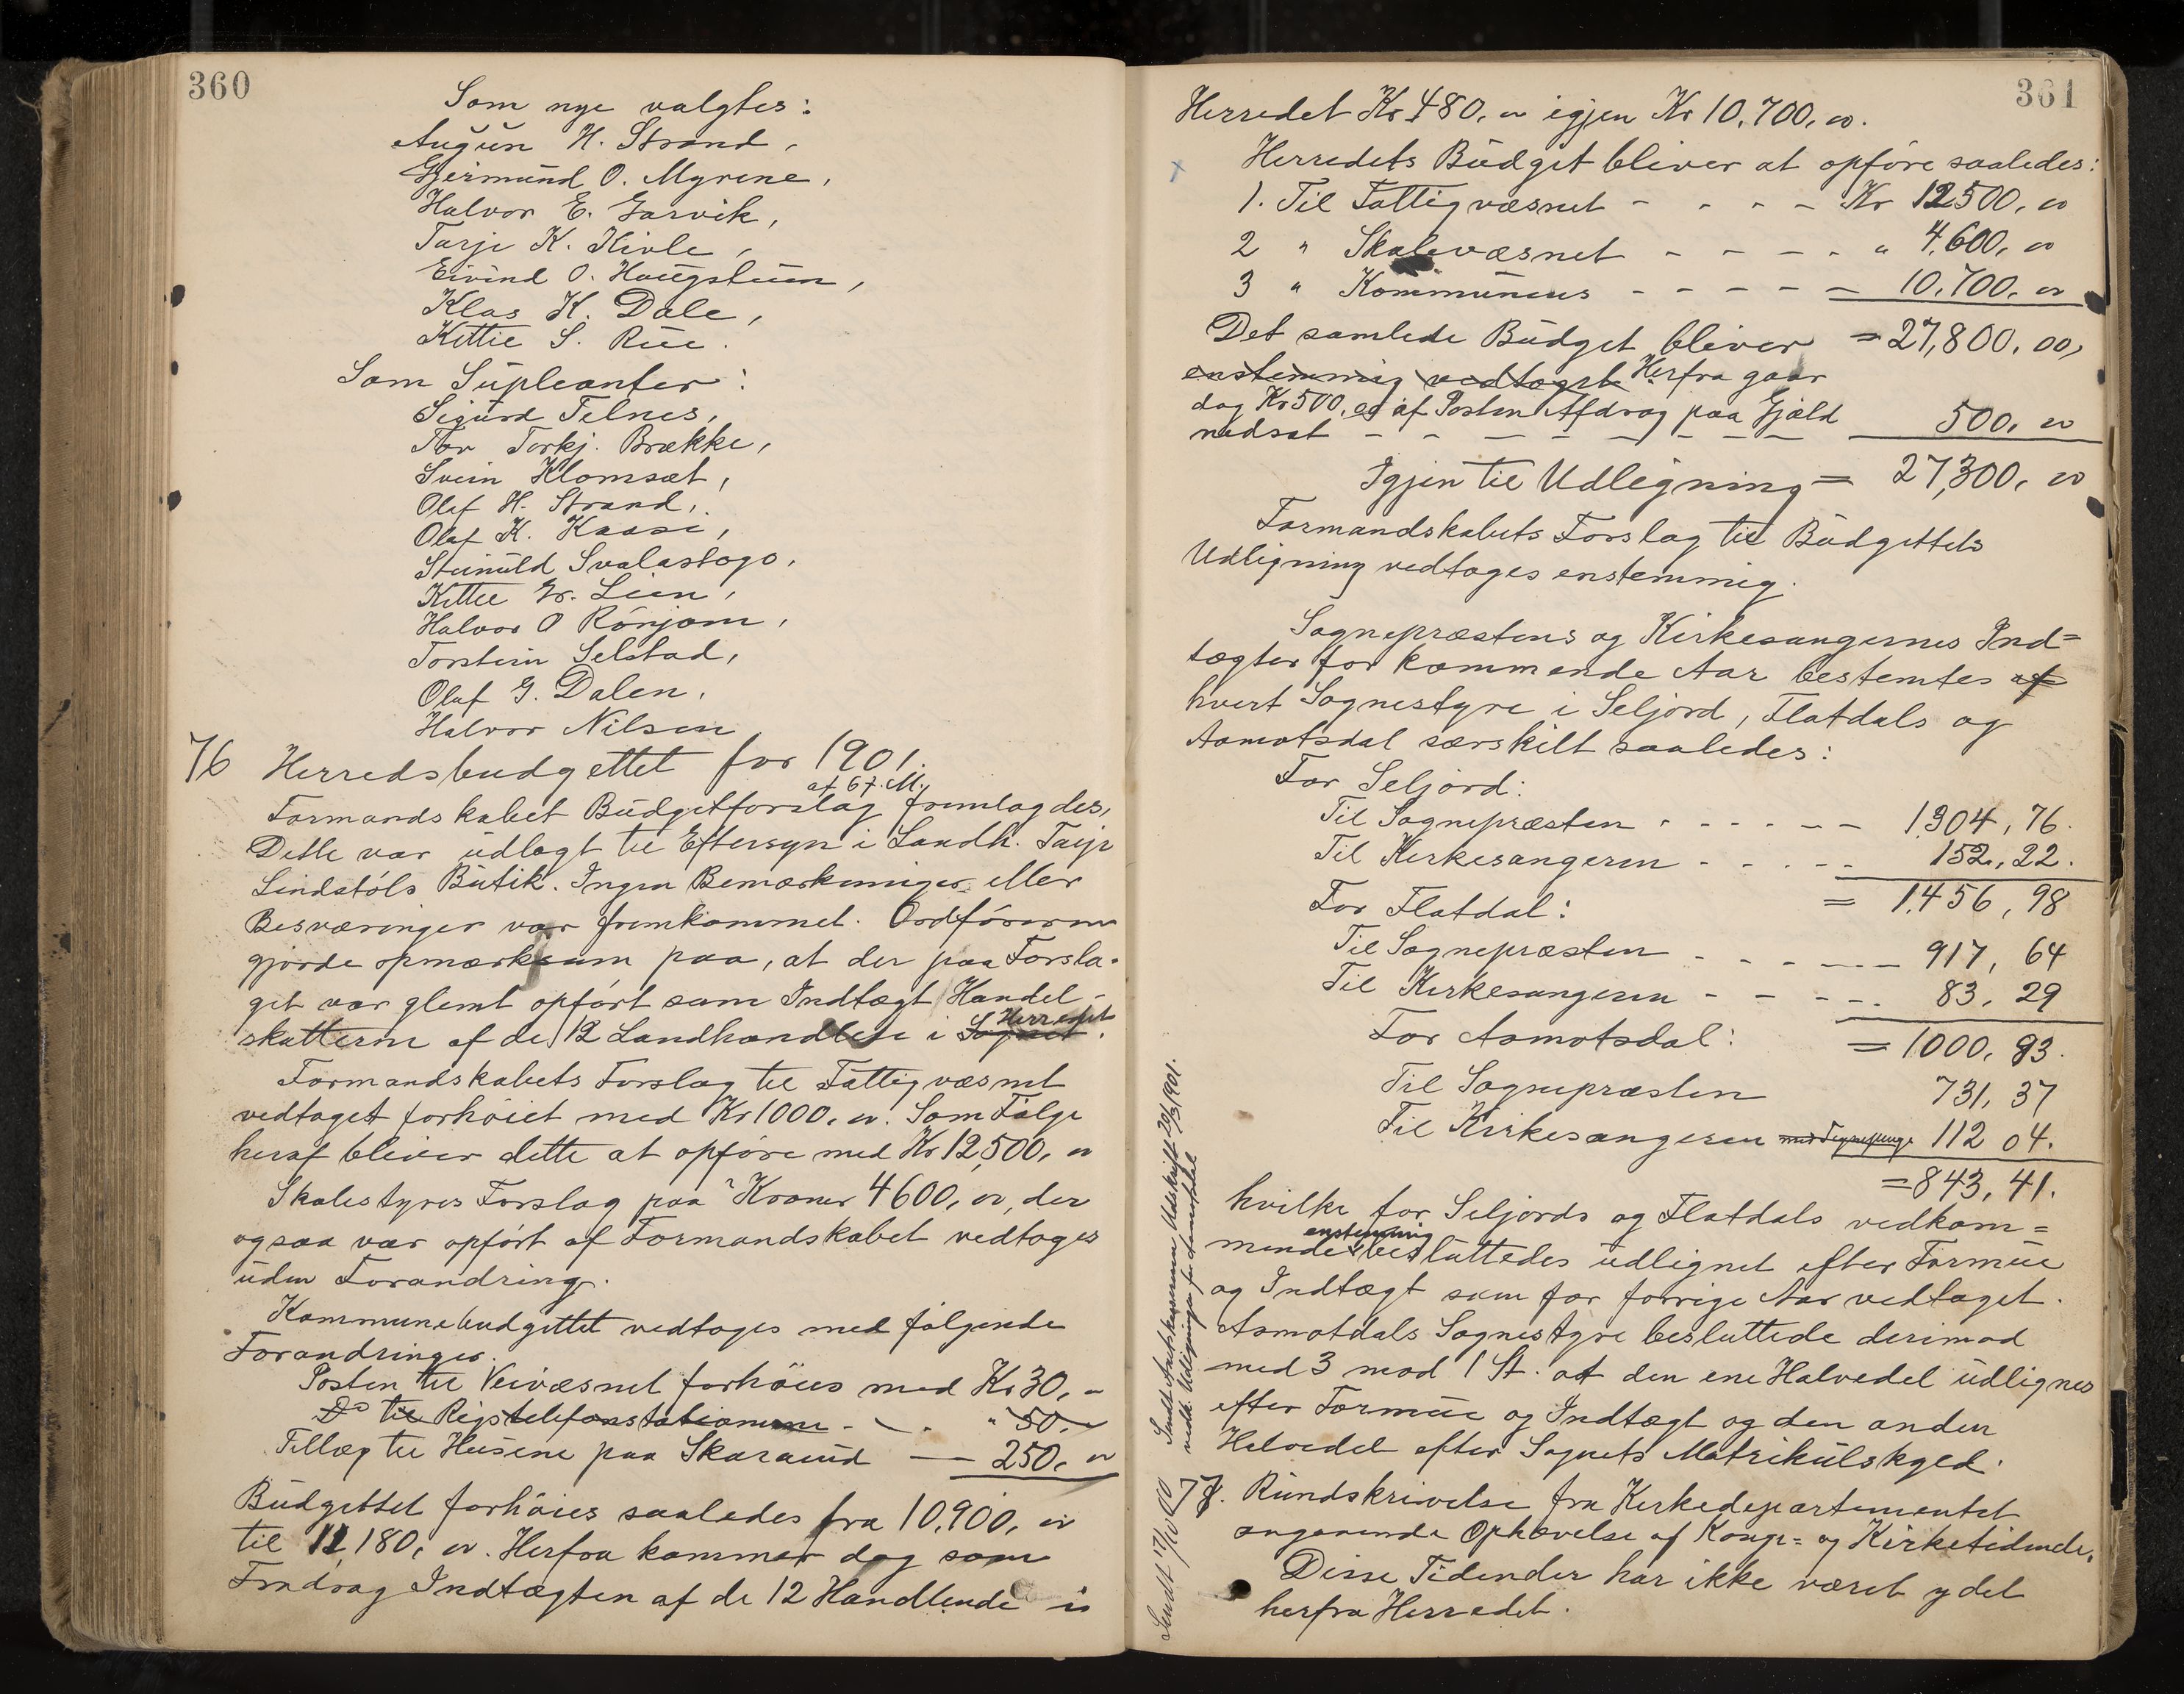 360
Som nye valgtes:
Augun H. Strand,
Gjermund O. Myrene,
Halvor E. Garvik,
Tarje K. Kivle,
Eivind O. Haugstuen,
Klas K. Dale,
Kittil S. Rue.
Som Supleanter:
Sigurd Telnes,
Tor Torkj. Brække,
Svein Klomsæt,
Olaf H. Strand,
Olaf K. Kaase,
Steinuld Svalastoga,
Kittil Gr. Lien,
Halvor O Rønjom,
Torstein Selstad,
Olaf G. Dalen,
Halvor Nilsen
76 Herredsbudgettet for 1901.
af 6 f. M.
Formandskabet Budgetforslag fremlagdes,
Dette var udlagt til Eftersyn i Landh. Tarje
Lindstøls Butik. Ingen Bemærkninger eller
Besværinger var fremkommet. Ordføreren
gjorde opmærksom paa, at der paa Forsla-
get var glemt opført som Indtægt Handel-
skatterne af de 12 Landhandlere i Sognet Herredet.
Formandskabets Forslag til Fattigvæsnet
vedtaget forhøiet med Kr 1000, 00. Som Følge
heraf bliver dette at opføre med Kr 12,500, 00
Skolestyres Forslag paa Kroner 4600, 00, der
ogsaa var opført af Formandskabet vedtoges
uden Forandring.
Kommunebudgettet vedtoges med følgende
Forandringer.
Posten til Veivæsnet forhøies med Kr 30, "
Do til Rigstelefonstationerne - - " 50, "
Tillæg til Husene paa Skaraud — 250, "
Budgettet forhøies saaledes fra 10,900, 00
til 11,180, 00. Herfra kommer dog som
Fradrag Indtægten af de 12 Handlende i
361
Herredet Kr 480, 00 igjen Kr 10,700, 00.
Herredets Budget bliver at opføre saaledes:
1. Til Fattigvæsnet - - - - Kr 12500, 00
2 " Skolevæsnet - - - - " 4,600, 00
3 " Kommunens - - - - - 10,700, 00
Det samlede Budget bliver = 27,800, 00,
enstemmig vedtaget. Herfra gaar
dog Kr 500, 00 af Posten Afdrag paa Gjæld
nedsat - - - - - - - 500, 00
Igjen til Udligning = 27,300, 00
Formandskabets Forslag til Budgettets
Udligning vedtoges enstemmig.
Sogneprestens og Kirkesangernes Ind=
tægter for kommende Aar bestemtes af
hvert Sognestyre i Seljord, Flatdals og
Aamotsdal særskilt saaledes:
For Seljord:
Til Sognepræsten - - - - - 1304, 76.
Til Kirkesangeren - - - - 152, 22.
= 1.456, 98
For Flatdal:
Til Sognepræsten - - - - - 917, 64
Til Kirkesangeren - - - - - 83, 29
= 1000, 93.
For Aamotsdal:
Til Sognepræsten 731, 37
Til Kirkesangeren 112 04.
= 843, 41.
hvilke for Seljords og Flatdals vedkom=
mende enstemmig besluttedes udlignet efter Formue
og Indtægt som for forrige Aar vedtaget.
Aamotdals Sognestyre besluttede derimod
med 3 mod 1 St. at den ene Halvedel udlignes
efter Formue og Indtægt og den anden
Halvedel efter Sognets Matrikulskyld.
77. Rundskrivelse fra Kirkedepartementet
angaaende Ophævelse af Konge- og Kirketidende.
Disse Tidender har ikke været ydet
herfra Herredet.
Sendt 17/10 00